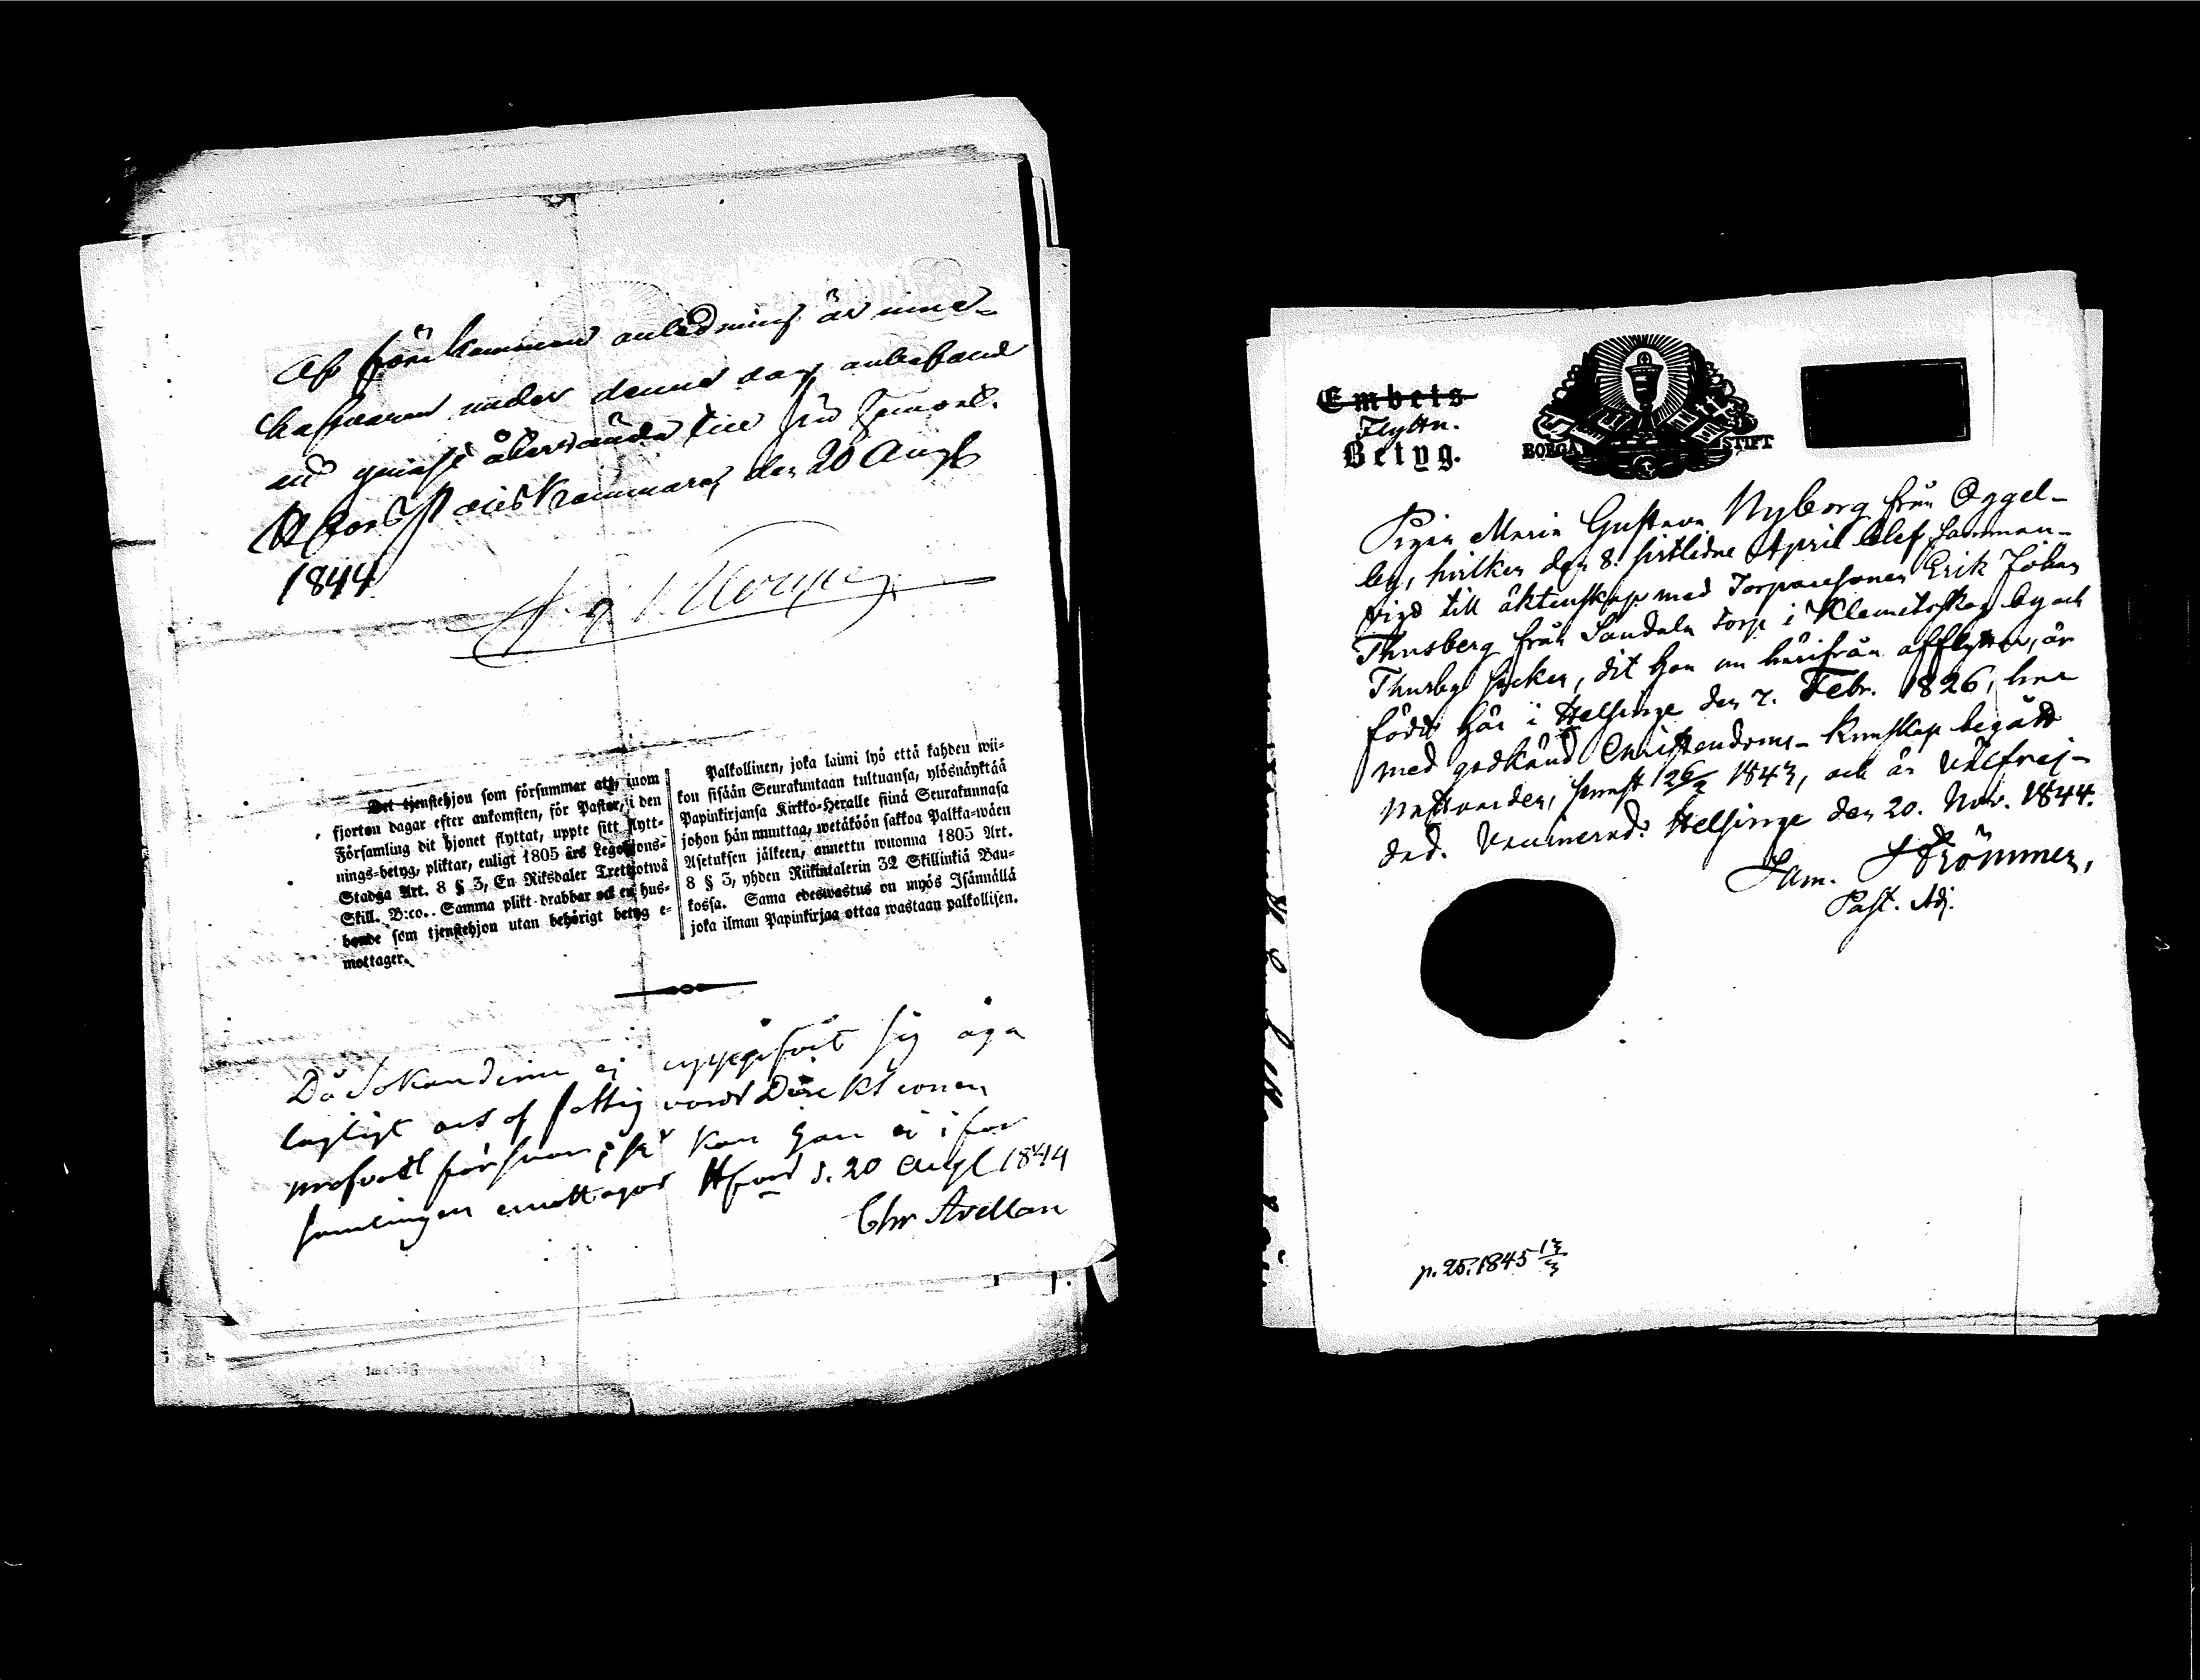 Af förekommen anledning är inne-
hafvaren under denna dag anbefald
att genast återvända till sin hemort.
H:fors Poliskammare den 20 Aug
1844
Det tjenstehjon som försummar att, inom
fjorton dagar efter ankomsten, för Pastor, i den
Församling dit hjonet flyttat, uppte sitt flytt-
nings-betyg, pliktar, enligt 1805 års Legohjons-
Stadga Art. 8 § 3, En Riksdaler Trettiotwå
Skill. B:co.. Samma plikt drabbar ock en hus-
bonde som tjenstehjon utan behörigt betyg e-
mottager.
Palkollinen, joka laimi lyö että kahden wii-
kon sisään Seurakuntaan tultuansa, ylösnäyktää
Papinkirjansa Kirkko-Heralle siinä Seurakunnasa
johon hän muuttaa, wetäköön sakkoa Palkka-wäen
Asetuksen jälkeen, annettu wuonna 1805 Art.
8 § 3, yhden Riikintalerin 32 Skillinkiä Ban-
kossa. Sama edeswastus on myös Isännällä
joka ilman Papinkirjaa ottaa wastaan palkollisen.
Då Sökandinn ej uppgifvit sig äga
lagligt och af fattigvårds Direktionen
försvar, så kan hon ej i för
samlingen emottagas Hfors d. 20 Aug 1844
Chr Avellan
Embets
Flyttn.
Betyg.
BORGÅ STIFT
Pigan Maria Gustava Nyborg från Oggel-
by, hvilken den 8. sistlidne April blef samman-
vigd till äktenskap med Torparesonen Erik Johan
Thusberg från Sandals torp i Klemetskog by och
Thusby socken, dit hon nu härifrån afflyttar, är
född här i Helsinge den 7. Febr. 1826, har
med godkänd Christendoms-kunskap begått
Nattvarden, senast 26/2 1843, och är Välfrej-
dad. Vaccinerad. Helsinge den 20. Nov. 1844.
Sam. Strömmer,
Past. Adj.
p. 25. 1845 13/3